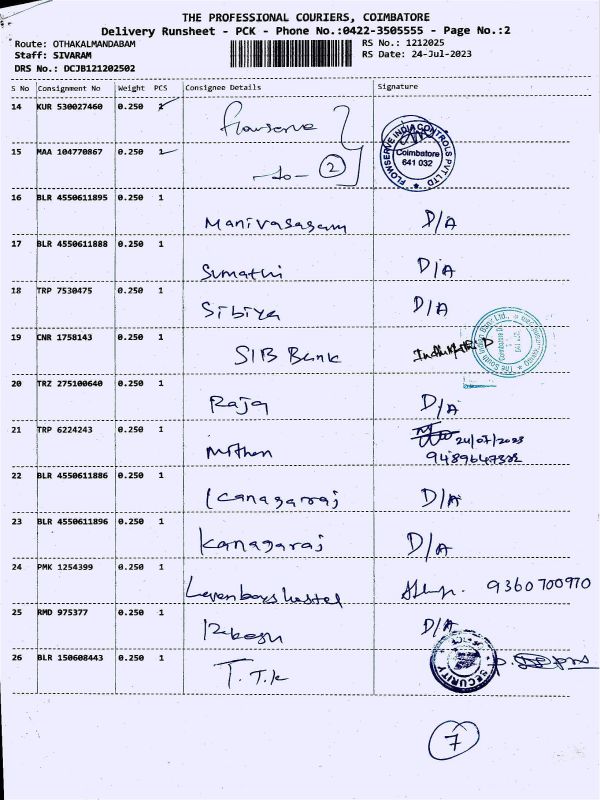 THE PROFESSIONAL COURIERS, COIMBATORE
Delivery Runsheet - PCK - Phone No.:0422-3505555 - Page No.:2
Route: OTHAKALMANDABAM RS No.: 1212025
Staff: SIVARAM RS Date: 24-Jul-2023
DRS No.: DCJB121202502
S No Consignment No Weight PCS Consignee Details Signature
14 KUR 530027460 0.250 1 flowserve
FLOWSERVE INDIA CONTROLS PVT LTD
Coimbatore
641 032
15 MAA 104770867 0.250 1 -do- 2
16 BLR 4550611895 0.250 1 Manivasagam D/A
17 BLR 4550611888 0.250 1 Sumathi D/A
18 TRP 7530475 0.250 1 Sibiya D/A
19 CNR 1758143 0.250 1 SIB Bank
The South Indian Bank Ltd.,
20 TRZ 275100640 0.250 1 Raja D/A
21 TRP 6224243 0.250 1 Mithen 24/07/2023
22 BLR 4550611886 0.250 1 Kanagaraj D/A
23 BLR 4550611896 0.250 1 Kanagaraj D/A
24 PMK 1254399 0.250 1 9360700970
25 RMD 975377 0.250 1 D/A
26 BLR 150608443 0.250 1 T.T.K
SECURITY
7